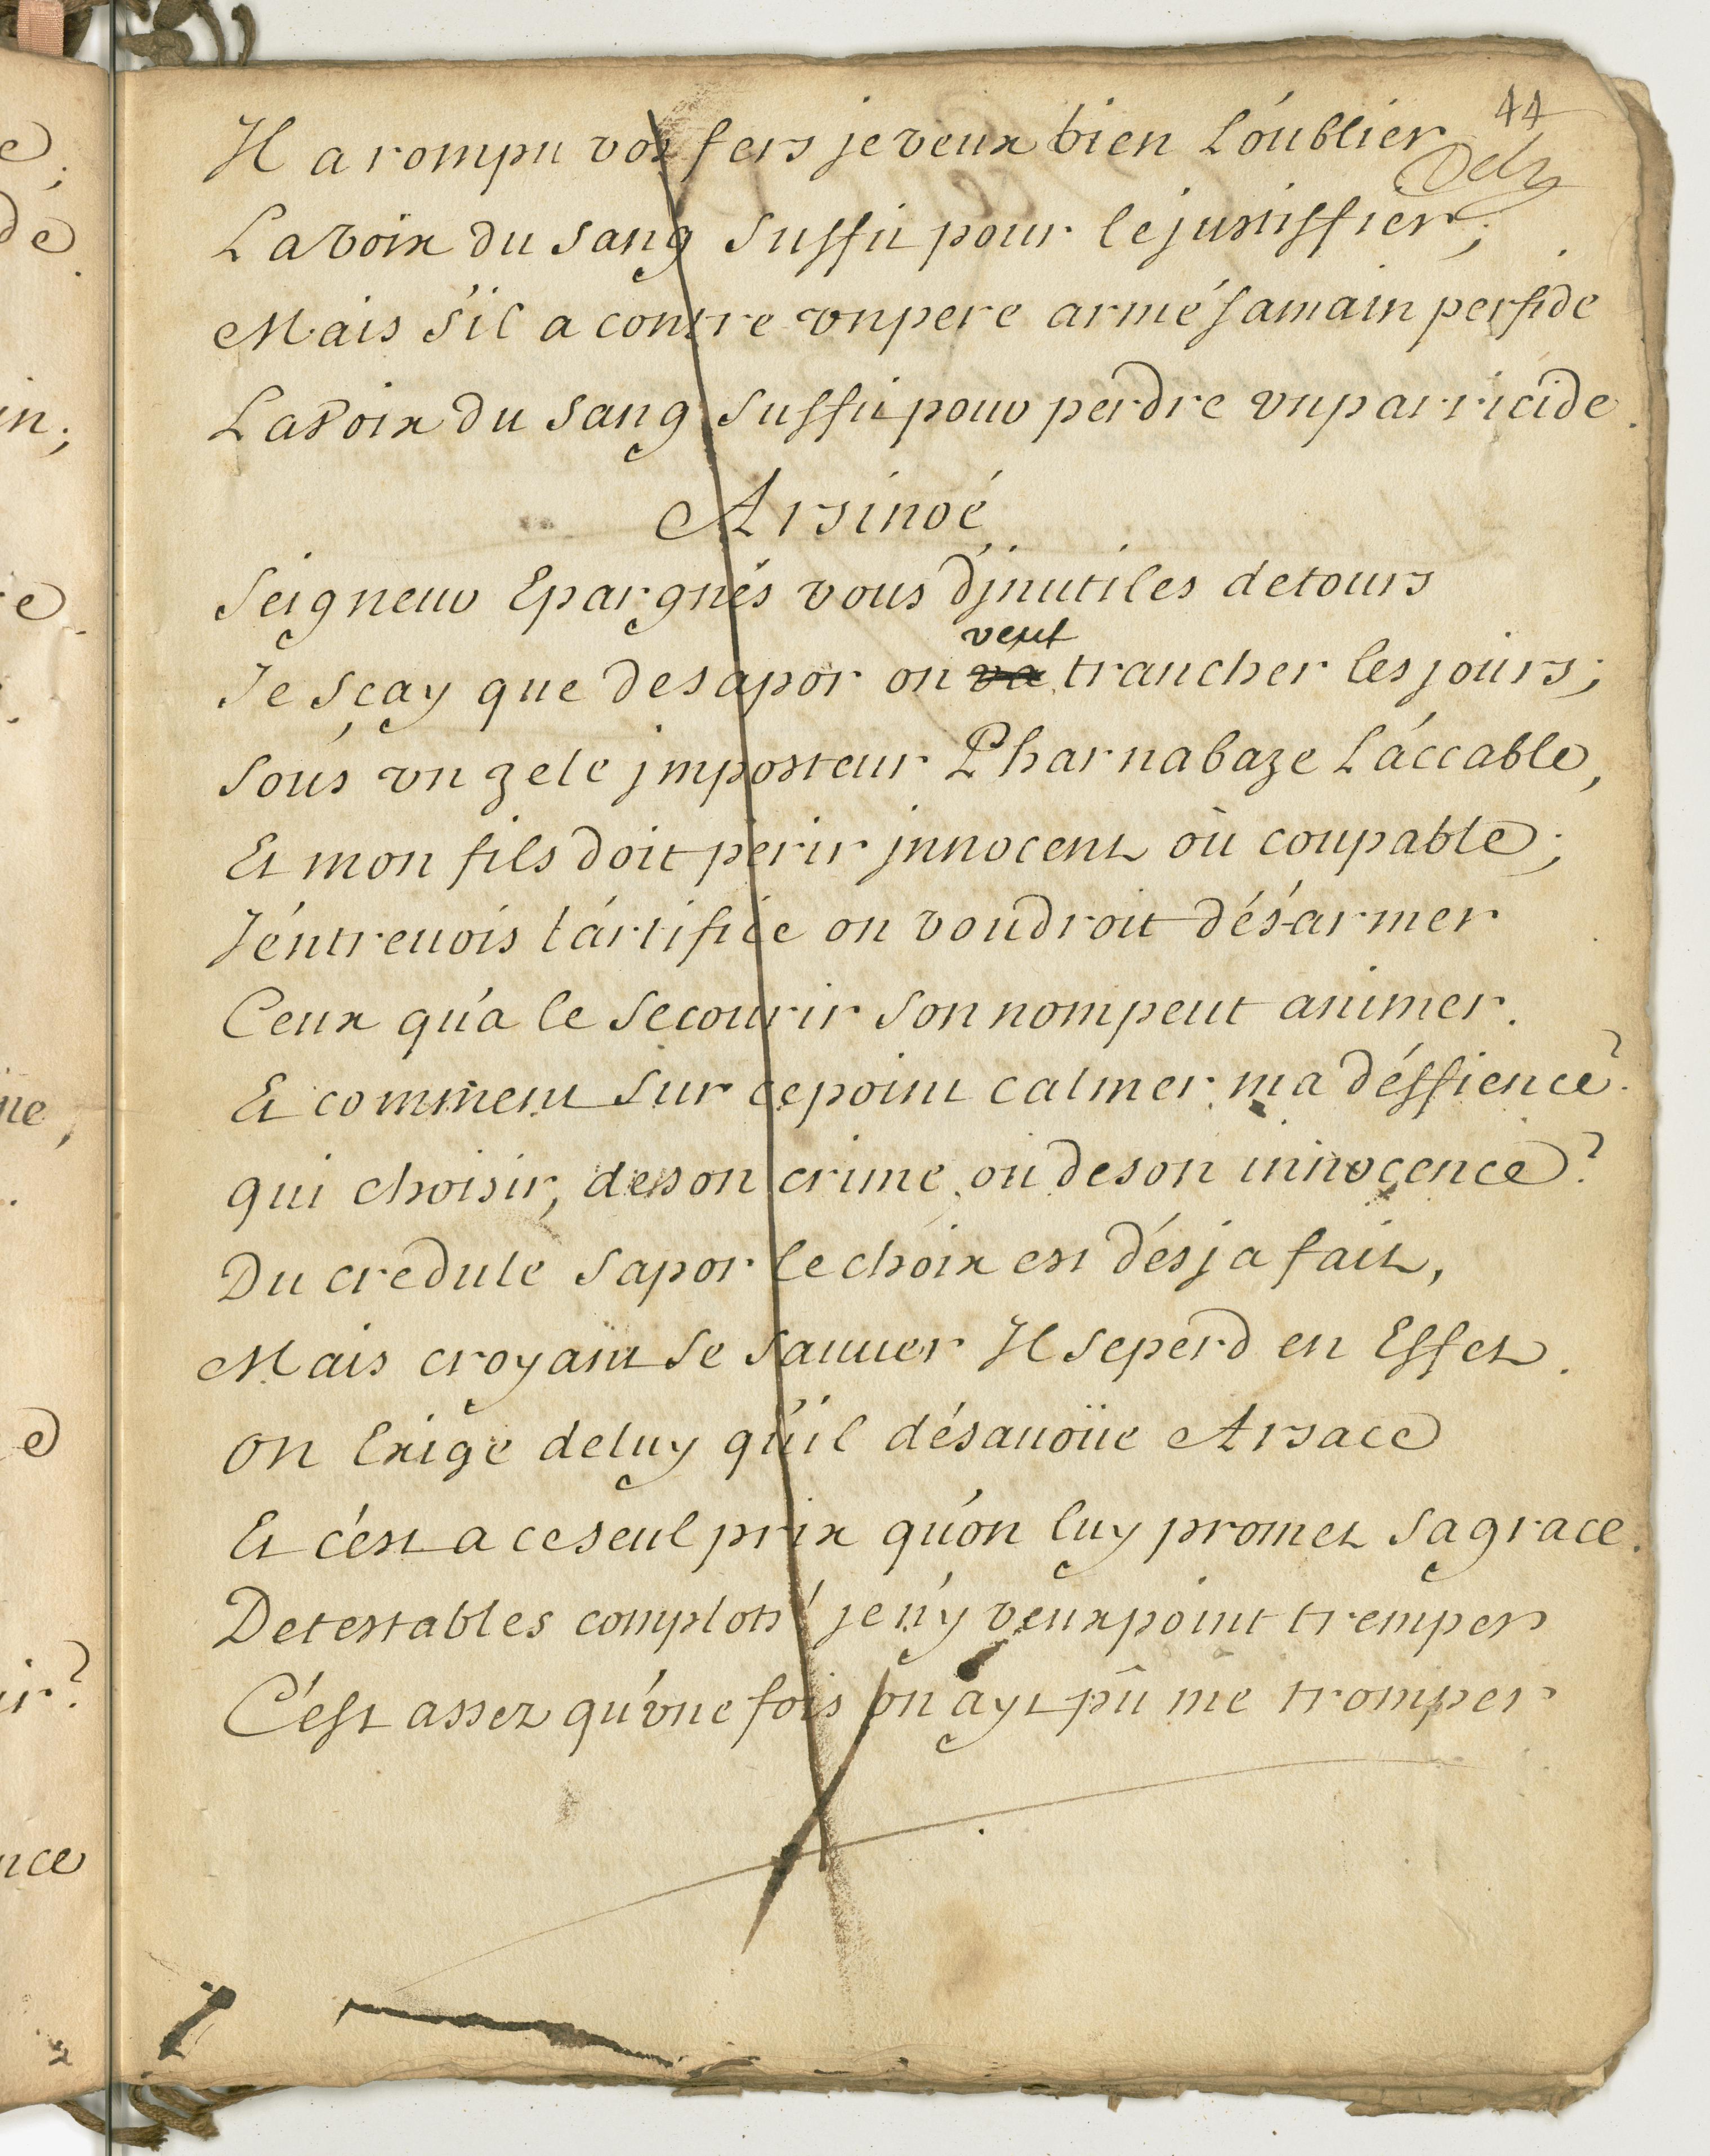 44
Il a rompu vos fers je veux bien L'oublier
La voix du sang suffit pour le justiffier;
Mais s'il a contre vn pere armé sa main perfide
La voix du sang suffit pour perdre vn parricide.
Arsinoé
Seigneur Epargnés vous d'jnutiles detours
veut
Je sçay que de sapor on va trancher les jours;
Sous vn zele jmposteur Pharnabaze L'accable,
Et mon fils doit perir jnnocent ou coupable;
J'entreuois l'artifice on voudroit désarmer
Ceux qu'a le secourir son nom peut animer.
Et comment sur ce point calmer ma déffience?
qui choisir, de son crime, ou de son innocence?
Du credule sapor le choix est désja fait,
Mais croyant se sauuer Il se perd en Effet.
On Exige de luy qu'il désauoüe Arsace
Et c'est a ce seul prix qu'on luy promet sa grace.
Detestables complots! je n'y veux point tremper
C'est assez qu'vne fois on ayt pû me tromper